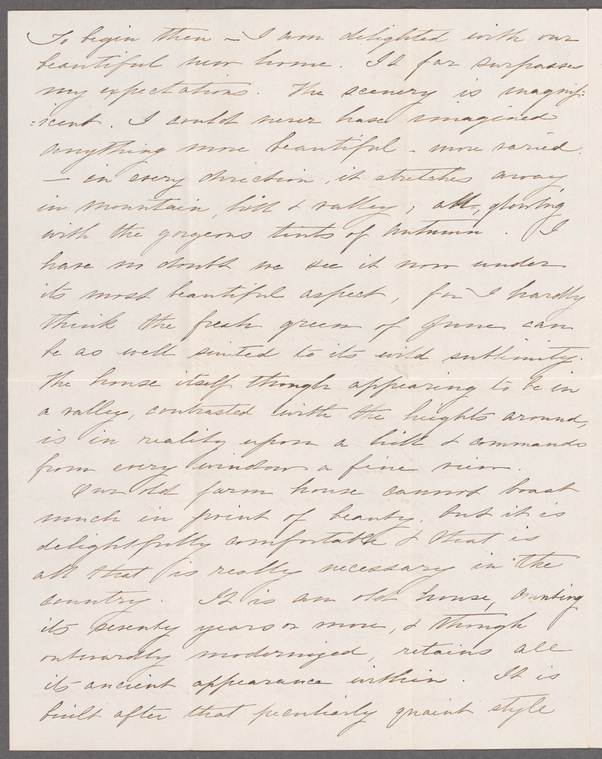 To begin then - I am delighted with our
beautiful new home. It far surpasses
my expectations. The scenery is magnif:
:icent. I could never have imagined
anything more beautiful - more varied.
— in every direction, it stretches away
in mountain, hill & valley, all, glowing
with the gorgeous tints of Autumn. I
have no doubt we see it now under
its most beautiful aspect, for I hardly
think the fresh green of June can
be as well suited to its wild sublimity.
The house itself though appearing to be in
a valley, contrasted with the heights around,
is in reality upon a hill & commands
from every window a fine view.
Our old farm house cannot boast
much in point of beauty, but it is
delightfully comfortable & that is
all that is really necessary in the
country. It is an old house, counting
its seventy years or more, & though
outwardly modernized, retains all
its ancient appearance within. It is
built after that peculiarly quaint style